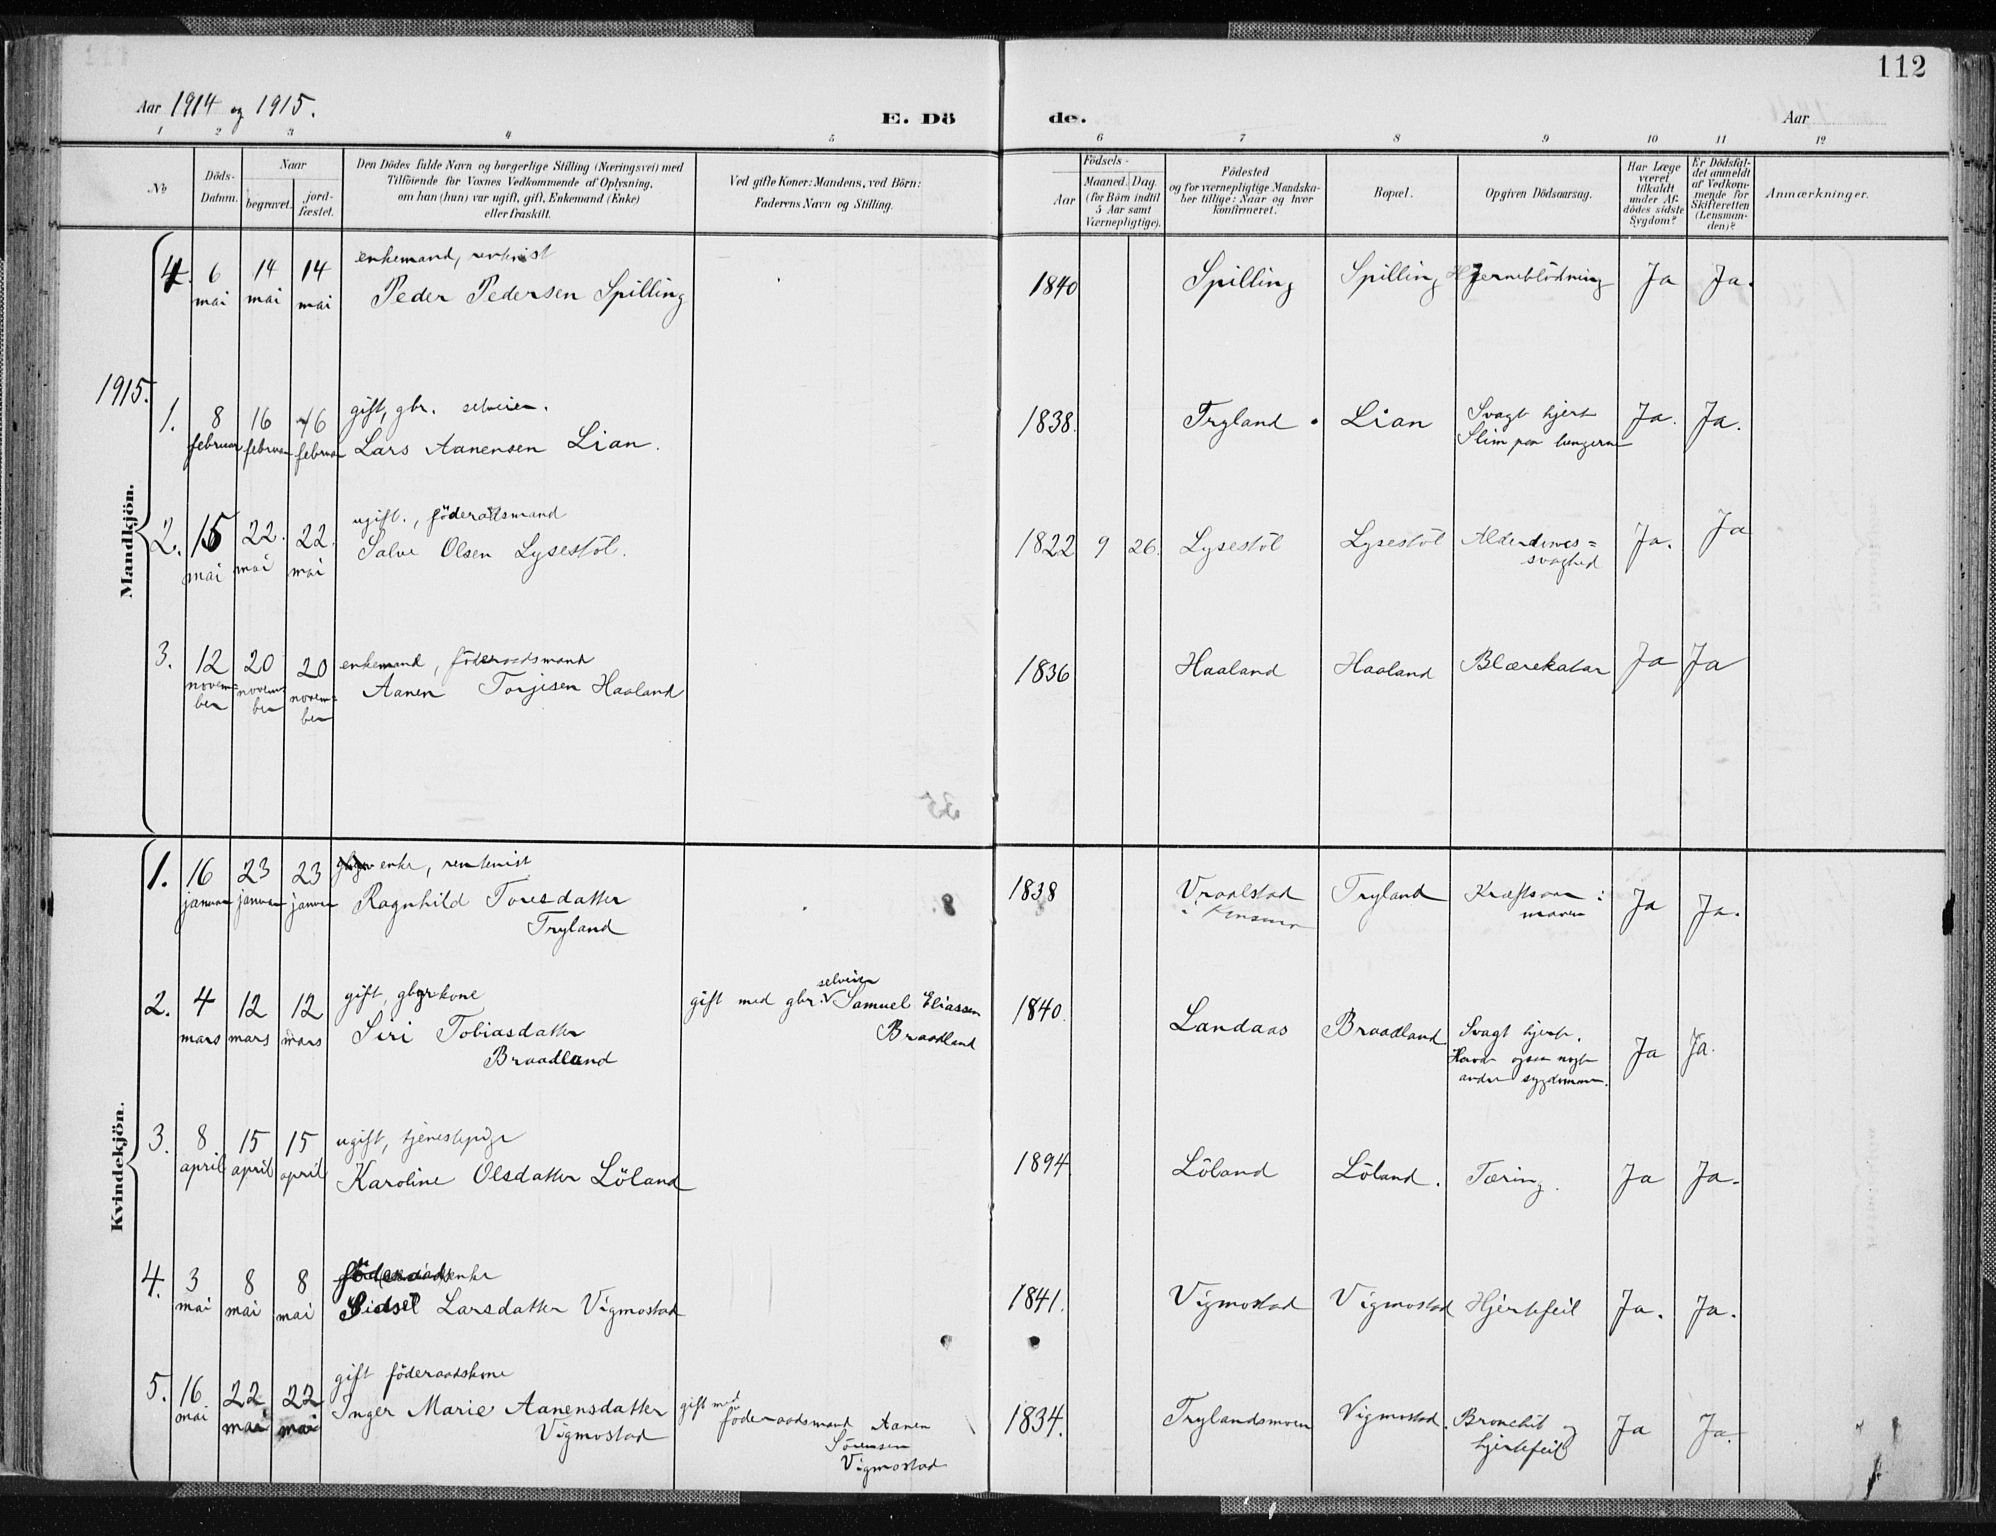 112
Aar 1914 og 1915.
E. Dö de.
Aar
1 2 3 4 5 6 7 8 9 10 11 12
No
Döds-
Datum.
Naar
begravet.
jord-
fæstet.
Den Dödes fulde Navn og borgerlige Stilling (Næringsvei) med
Tilföiende for Voxnes Vedkommende af Oplysning,
om han (hun) var ugift, gift, Enkemand (Enke)
eller fraskilt.
Ved gifte Koner: Mandens, ved Börn:
Faderens Navn og Stilling.
Födsels-
Aar
Maaned. Dag.
(for Börn indtil
5 Aar samt
Værnepligtige).
Födested
og for værnepligtige Mandska-
ber tillige: Naar og hvor
konfirmeret.
Bopæl.
Opgiven Dödsaarsag.
Har Læge
været
tilkaldt
under Af-
dödes sidste
Sygdom?
Er Dödsfal-
det anmeldt
af Vedkom-
mende for
Skifteretten
(Lensman-
den)?
Anmærkninger.
Mandkjön.
enkemand, rentenist
4. 6 mai 14 mai 14 mai Peder Pedersen Spilling 1840 Spilling Spilling Hjerneblödning Ja Ja.
1915.
gift, gbr. selveier.
1. 8 februar 16 februar 16 februar Lars Aanensen Lian. 1838. Tryland Lian Svagt hjerte
Slim paa lungerne Ja. Ja.
ugift., föderaadsmand
2. 15 mai 22. mai 22. mai Salve Olsen Lysestöl. 1822 9 26. Lysestöl Lysestöl Alderdoms=
svaghed Ja. Ja
enkemand, föderaadsmand
3. 12 novem=
ber 20 novem=
ber 20 novem=
ber Aanen Torjisen Haaland 1836 Haaland Haaland Blærekatar Ja Ja
Kvindekjön.
enke, rentenist
1. 16 januar 23 januar 23 januar Ragnhild Toresdatter
Tryland 1838 Vraalstad
i Tryland Kræft i
maven Ja Ja.
gift, gbrkone
2. 4 mars 12 mars 12 mars Siri Tobiasdatter
Braadland gift med gbr. selveier Samuel Eliassen
Braadland 1840. Landaas Braadland Svagt hjerte.
Havde ogsaa
andre sygdomme. Ja Ja.
ugift, tjenestepige
3. 8 april 15 april 15 april Karoline Olsdatter Löland 1894. Löland Löland. Tæring. Ja Ja.
föderaadsenke
4. 3 mai 8 mai 8 mai Sidsel Larsdatter Vigmostad 1841. Vigmostad Vigmostad Hjertefeil Ja. Ja.
gift föderaadskone
5. 16 mai 22 mai 22 mai Inger Marie Aanensdatter
Vigmostad gift med
föderaadsmand Aanen
Sörensen
Vigmostad 1834. Trylandsmoen Vigmostad. Bronchit og
hjertefeil Ja Ja.